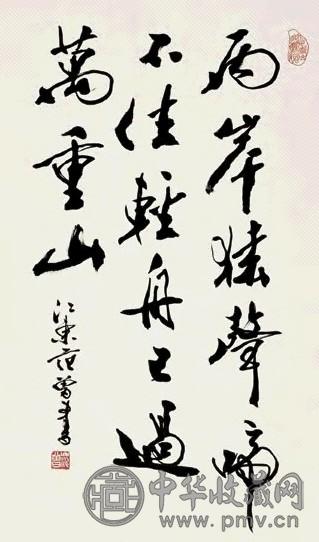 两岸猿聲啼
不住輕舟已過
萬重山
江東范曾書
中华收藏网
www.pmv.cn